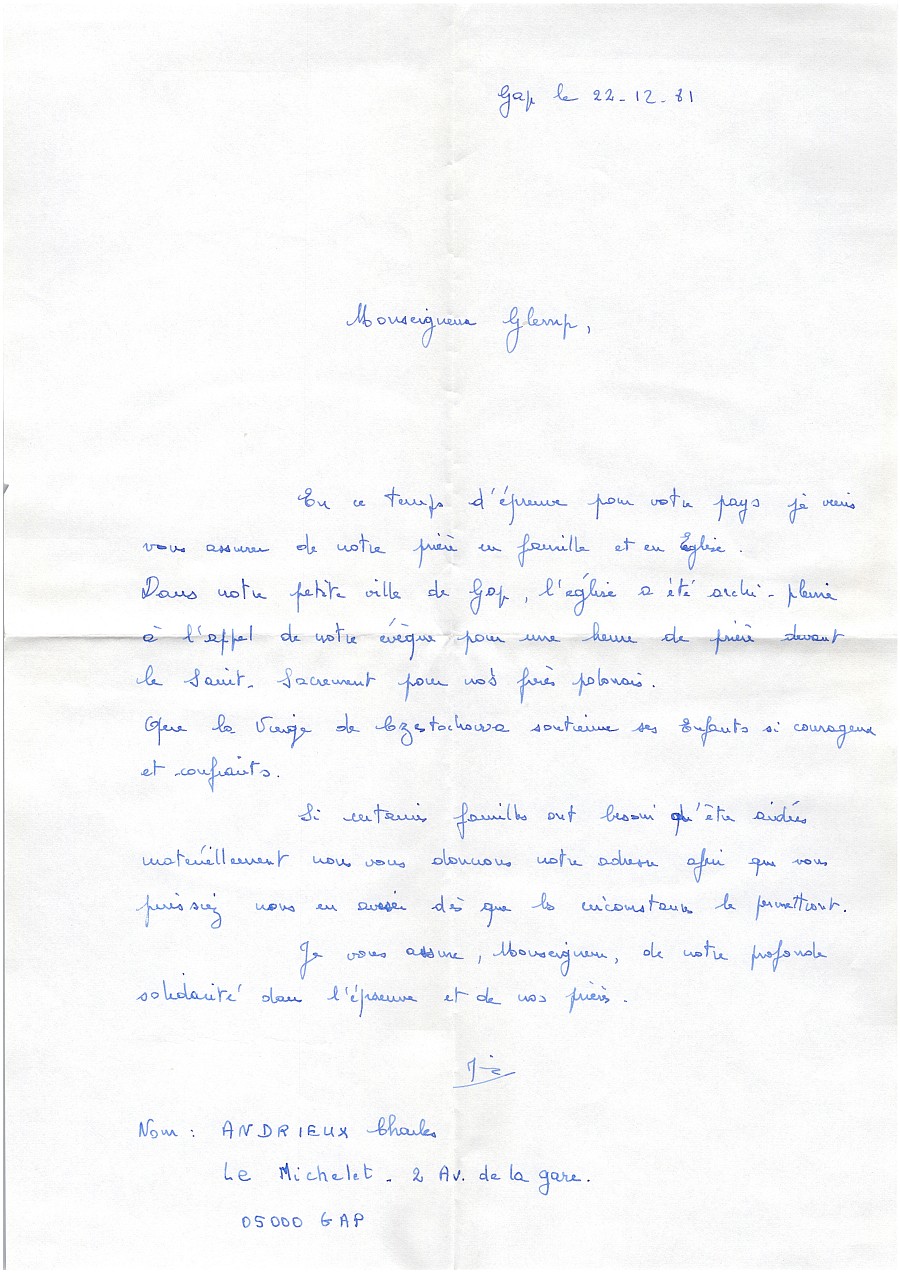 Gap le 22-12-81
Monseigneur Glemp,
En ce temps d'épreuve pour votre pays je viens
vous assurer de notre prière en famille et en Eglise.
Dans notre petite ville de Gap, l'église a été archi-pleine
à l'appel de notre évêque pour une heure de prière devant
le Saint-Sacrement pour nos frères polonais.
Que la Vierge de Czestochowa soutienne ses Enfants si courageux
et confiants.
Si certaines familles ont besoin qu'être aidées
matériellement nous vous donnons notre adresse afin que vous
puissiez nous en aviser dès que les circonstances le permettront.
Je vous assure, Monseigneur, de notre profonde
solidarité dans l'épreuve et de nos prières.
Nom : ANDRIEUX Charles
Le Michelet - 2 Av. de la gare.
05000 GAP